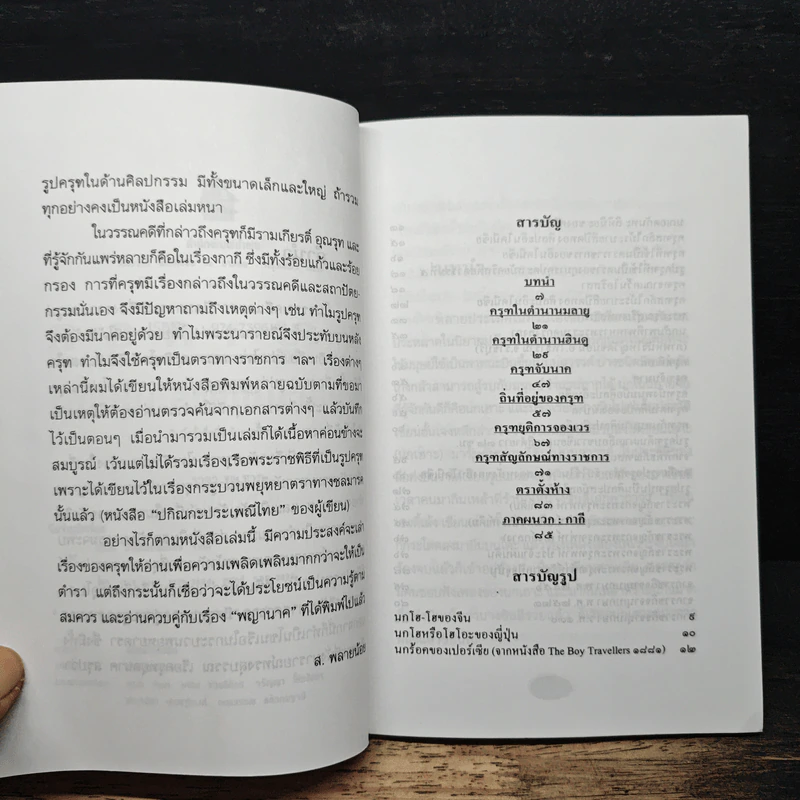 รูปครุฑในด้านศิลปกรรม มีทั้งขนาดเล็กและใหญ่ ถ้ารวม
ทุกอย่างคงเป็นหนังสือเล่มหนา
ในวรรณคดีที่กล่าวถึงครุฑก็มีรามเกียรติ์ อุณรุท และ
ที่รู้จักกันแพร่หลายก็คือในเรื่องกากี ซึ่งมีทั้งร้อยแก้วและร้อย
กรอง การที่ครุฑมีเรื่องกล่าวถึงในวรรณคดีและสถาปัตย-
กรรมนั่นเอง จึงมีปัญหาถามถึงเหตุต่างๆ เช่น ทำไมรูปครุฑ
จึงต้องมีนาคอยู่ด้วย ทำไมพระนารายณ์จึงประทับบนหลัง
ครุฑ ทำไมจึงใช้ครุฑเป็นตราทางราชการ ฯลฯ เรื่องต่างๆ
เหล่านี้ผมได้เขียนให้หนังสือพิมพ์หลายฉบับตามที่ขอมา
เป็นเหตุให้ต้องอ่านตรวจค้นจากเอกสารต่างๆ แล้วบันทึก
ไว้เป็นตอนๆ เมื่อนำมารวมเป็นเล่มก็ได้เนื้อหาค่อนข้างจะ
สมบูรณ์ เว้นแต่ไม่ได้รวมเรื่องเรือพระราชพิธีที่เป็นรูปครุฑ
เพราะได้เขียนไว้ในเรื่องกระบวนพยุหยาตราทางชลมารค
นั้นแล้ว (หนังสือ "ปกิณกะประเพณีไทย" ของผู้เขียน)
อย่างไรก็ตามหนังสือเล่มนี้ มีความประสงค์จะเล่า
เรื่องของครุฑให้อ่านเพื่อความเพลิดเพลินมากกว่าจะให้เป็น
ตำรา แต่ถึงกระนั้นก็เชื่อว่าจะได้ประโยชน์เป็นความรู้ตาม
สมควร และอ่านควบคู่กับเรื่อง "พญานาค" ที่ได้พิมพ์ไปแล้ว
ส. พลายน้อย
สารบัญ
บทนำ
๗
ครุฑในตำนานมลายู
๒๑
ครุฑในตำนานฮินดู
๒๙
ครุฑจับนาค
๔๗
ถิ่นที่อยู่ของครุฑ
๕๗
ครุฑยุติการจองเวร
๖๗
ครุฑสัญลักษณ์ทางราชการ
๗๑
ตราตั้งห้าง
๘๓
ภาคผนวก : กากี
๘๕
สารบัญรูป
นกโฮ-โฮของจีน ๙
นกโฮหรือโฮโอะของญี่ปุ่น ๑๐
นกร็อคของเปอร์เซีย (จากหนังสือ The Boy Travellers ๑๘๘๑) ๑๒